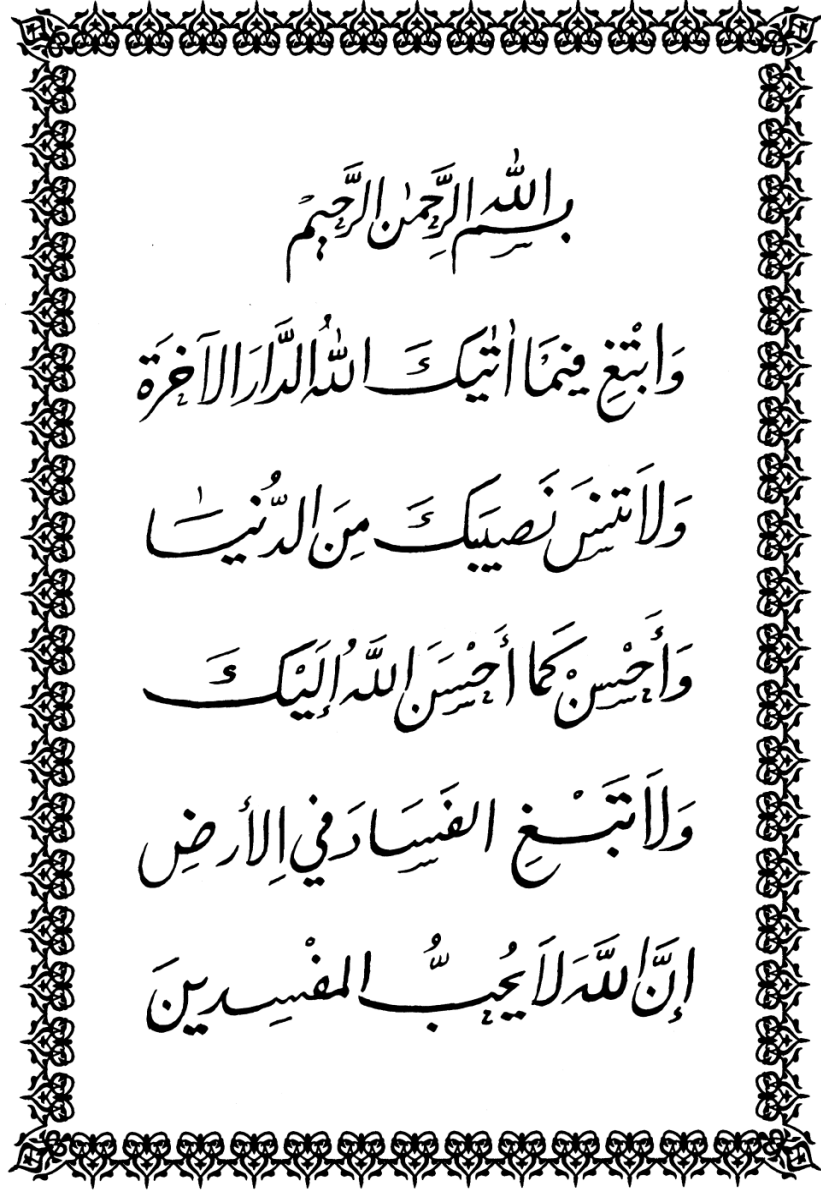 بِسْمِ اللّٰهِ الرَّحْمٰنِ الرَّحِيمْ
وَابْتَغِ فِيمَا اٰتٰيكَ اللّٰهُ الدَّارَ الآخِرَةَ
وَلاَ تَنسَ نَصِيبَكَ مِنَ الدُّنْيَا
وَأَحْسِنْ كَمَا أَحْسَنَ اللَّهُ إِلَيْكَ
وَلاَ تَبْغِ الفَسَادَ فِي الأَرضِ
إِنَّ اللَّهَ لاَ يُحِبُّ المفْسِدِينَ